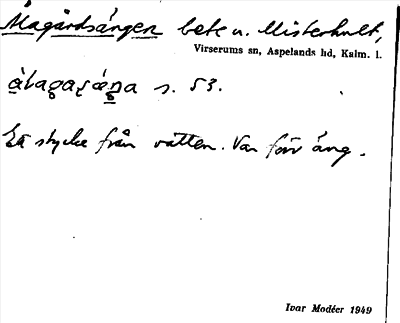 Åtagärdsängen bete u. Misterhult,
Virserums sn, Aspelands hd, Kalm. l.
s. 53.
Ett stycke från vatten. Var förr äng.
Ivar Modéer 1949